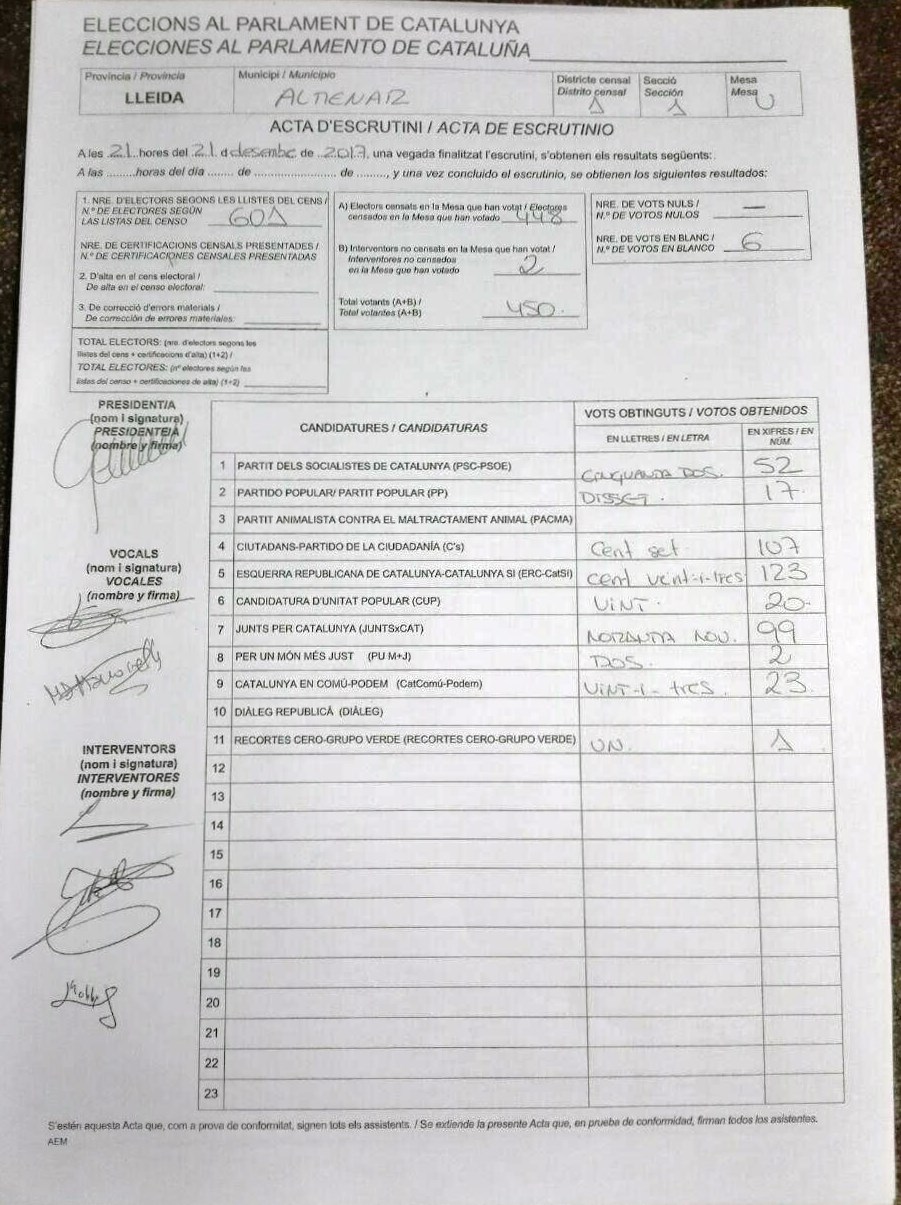 ELECCIONS AL PARLAMENT DE CATALUNYA
ELECCIONES AL PARLAMENTO DE CATALUÑA
Província / Provincia
LLEIDA
Municipi / Municipio
ALMENAR
Districte censal
Distrito censal
1
Secció
Sección
1
Mesa
Mesa
U
ACTA D'ESCRUTINI / ACTA DE ESCRUTINIO
A les 21 hores del 21 d desembre de 2017, una vegada finalitzat l'escrutini, s'obtenen els resultats següents:
A las .........horas del día ....... de ......................... de ........., y una vez concluido el escrutinio, se obtienen los siguientes resultados:
1. NRE. D'ELECTORS SEGONS LES LLISTES DEL CENS /
N.º DE ELECTORES SEGÚN
LAS LISTAS DEL CENSO 601
NRE. DE CERTIFICACIONS CENSALS PRESENTADES /
N.º DE CERTIFICACIONES CENSALES PRESENTADAS
2. D'alta en el cens electoral /
De alta en el censo electoral:
3. De correcció d'errors materials /
De corrección de errores materiales:
TOTAL ELECTORS: (nre. d'electors segons les
llistes del cens + certificacions d'alta) (1+2) /
TOTAL ELECTORES: (nº electores según las
listas del censo + certificaciones de alta) (1+2)
A) Electors censats en la Mesa que han votat / Electores
censados en la Mesa que han votado 448
B) Interventors no censats en la Mesa que han votat /
Interventores no censados
en la Mesa que han votado 2
Total votants (A+B) /
Total votantes (A+B) 450.
NRE. DE VOTS NULS /
N.º DE VOTOS NULOS —
NRE. DE VOTS EN BLANC /
N.º DE VOTOS EN BLANCO 6
PRESIDENT/A
(nom i signatura)
PRESIDENTE/A
(nombre y firma)
VOCALS
(nom i signatura)
VOCALES
(nombre y firma)
INTERVENTORS
(nom i signatura)
INTERVENTORES
(nombre y firma)
CANDIDATURES / CANDIDATURAS
VOTS OBTINGUTS / VOTOS OBTENIDOS
EN LLETRES / EN LETRA
EN XIFRES / EN NÚM.
1 PARTIT DELS SOCIALISTES DE CATALUNYA (PSC-PSOE) CINQUANTA DOS. 52
2 PARTIDO POPULAR/ PARTIT POPULAR (PP) DISSET. 17
3 PARTIT ANIMALISTA CONTRA EL MALTRACTAMENT ANIMAL (PACMA)
4 CIUTADANS-PARTIDO DE LA CIUDADANÍA (C's) Cent set 107
5 ESQUERRA REPUBLICANA DE CATALUNYA-CATALUNYA SÍ (ERC-CatSí) cent vint-i-tres 123
6 CANDIDATURA D'UNITAT POPULAR (CUP) VINT. 20
7 JUNTS PER CATALUNYA (JUNTSxCAT) NORANTA NOU. 99
8 PER UN MÓN MÉS JUST (PU M+J) DOS. 2
9 CATALUNYA EN COMÚ-PODEM (CatComú-Podem) VINT-I-tres. 23
10 DIÀLEG REPUBLICÀ (DIÀLEG)
11 RECORTES CERO-GRUPO VERDE (RECORTES CERO-GRUPO VERDE) UN. 1
12
13
14
15
16
17
18
19
20
21
22
23
S'estén aquesta Acta que, com a prova de conformitat, signen tots els assistents. / Se extiende la presente Acta que, en prueba de conformidad, firman todos los asistentes.
AEM